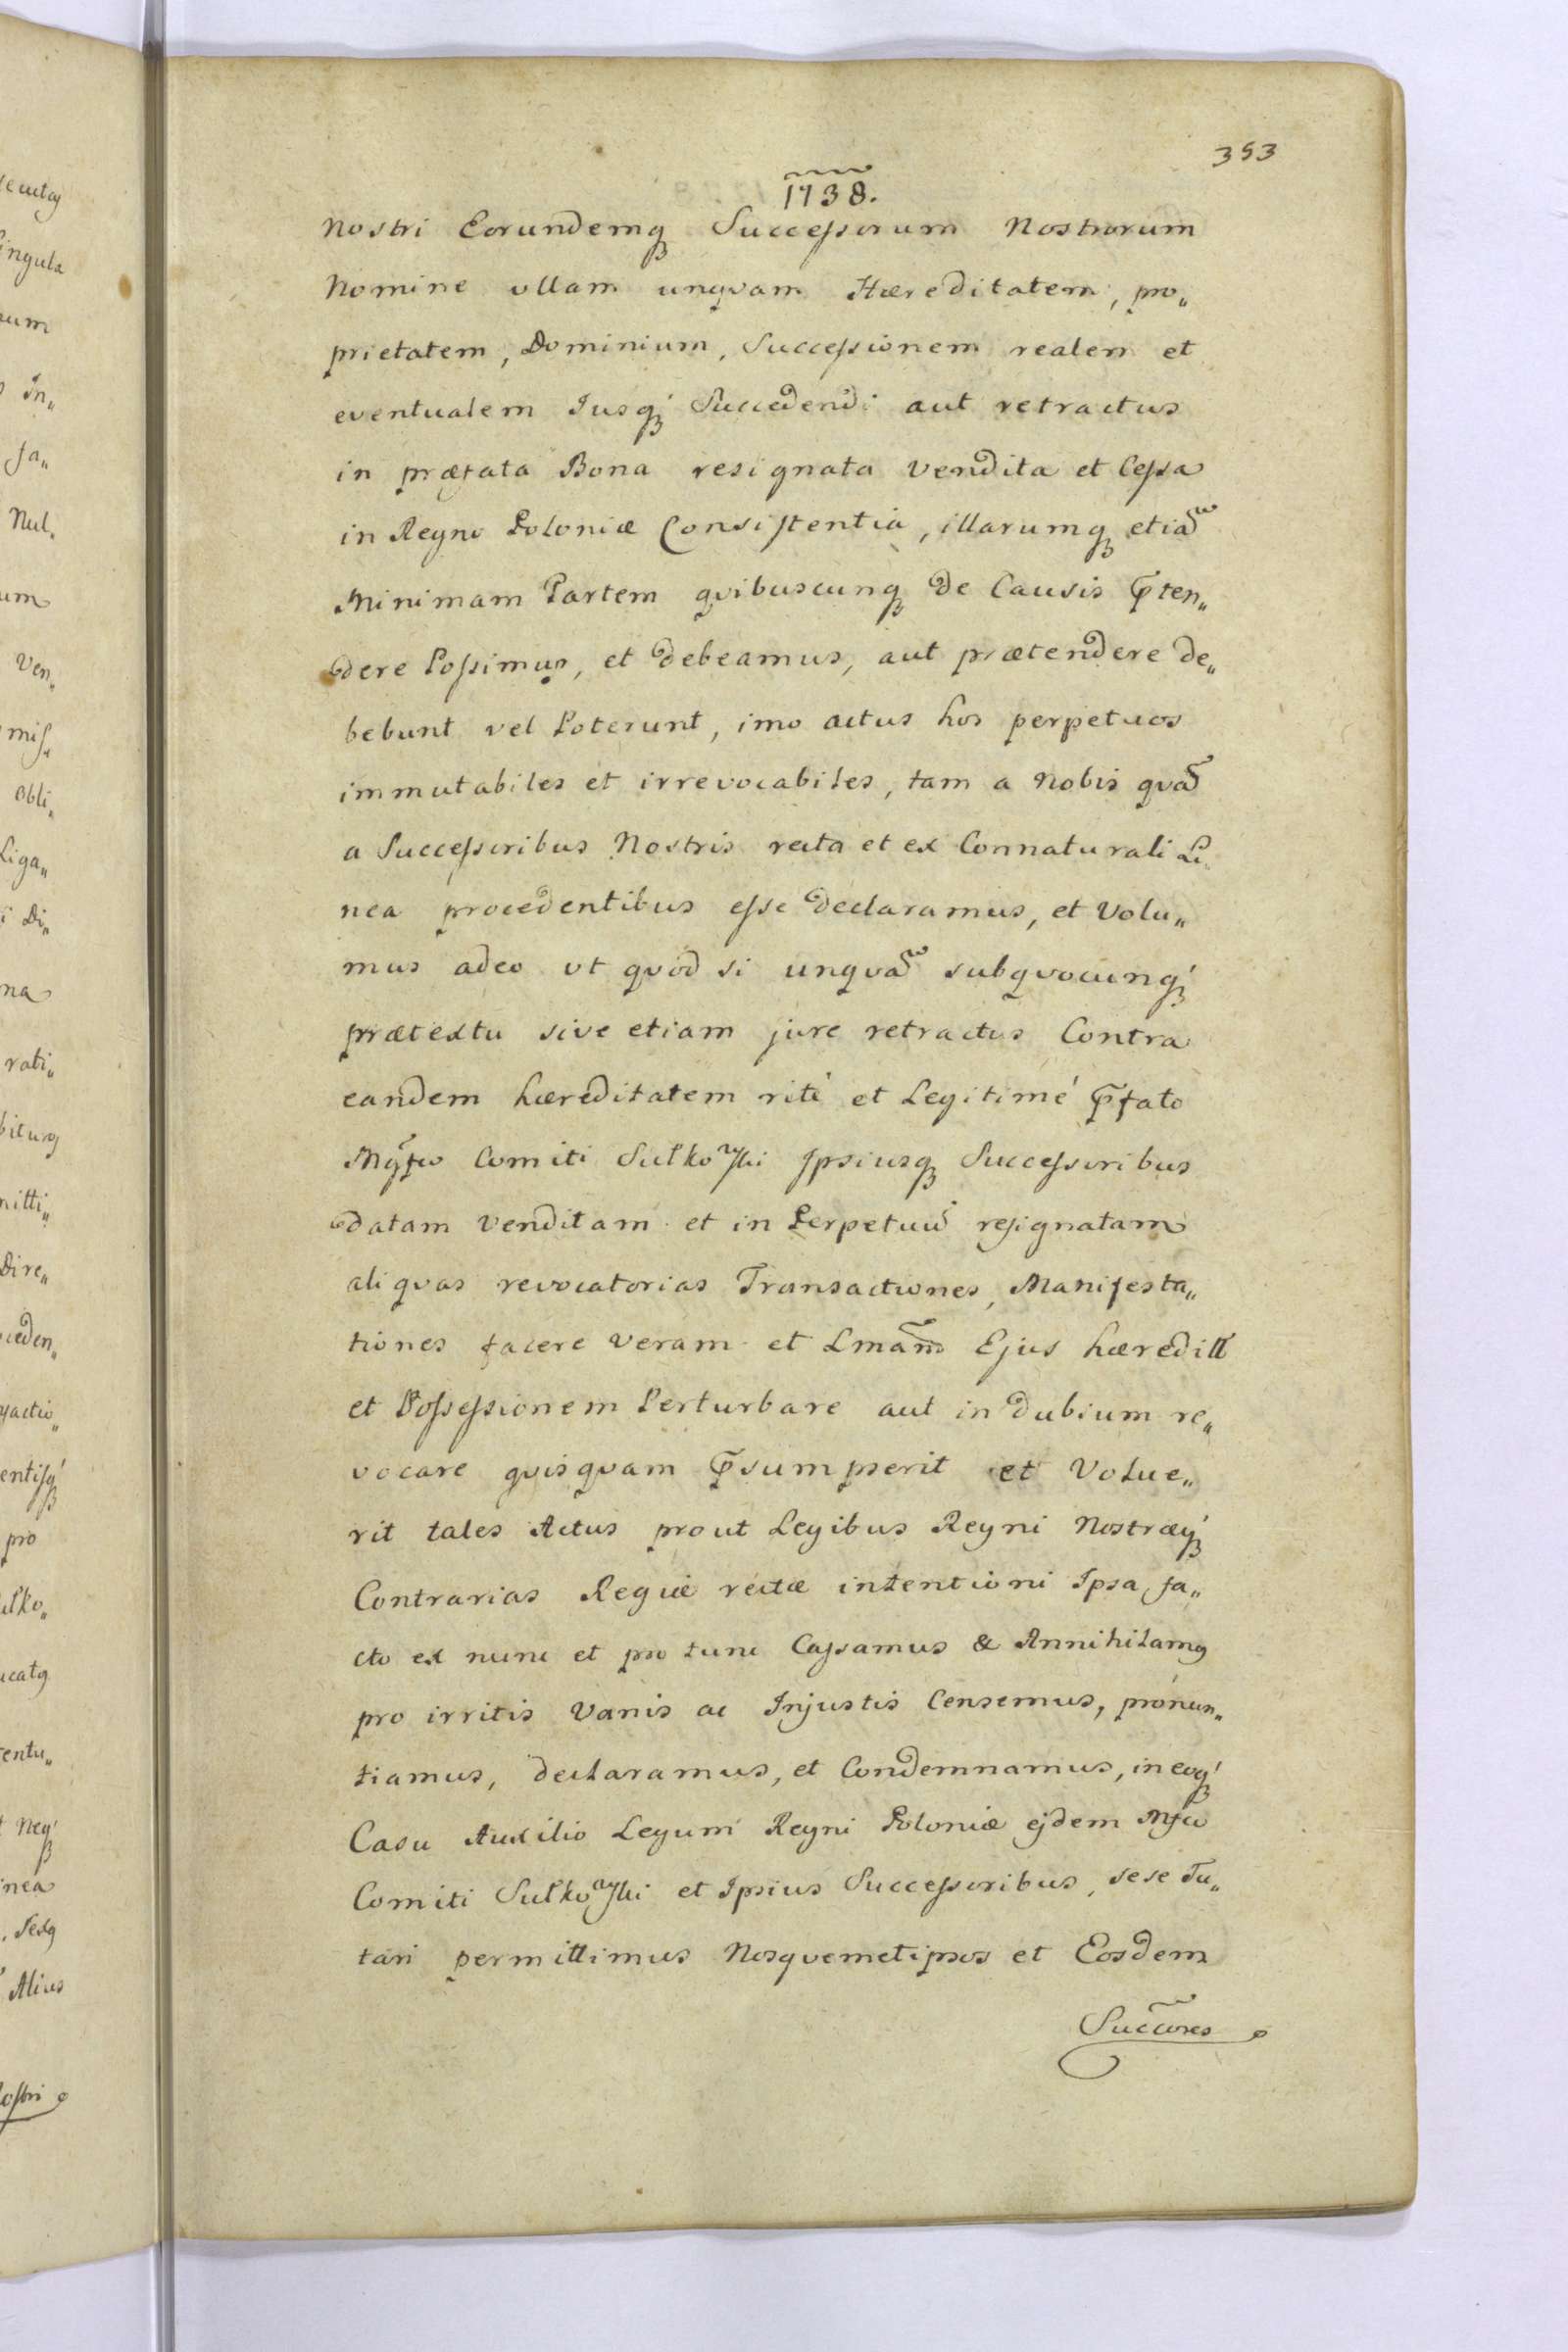 353
1738.
Nostri Eorundemq Successorum Nostrorum
Nomine ullam unqvam Hæreditatem, pro„
prietatem, Dominium, Successionem realem et
eventualem Jusq́ Succedendi aut retractus
in præfata Bona resignata vendita et Cessa
in Regno Poloniæ Consistentia, illarumq etiã
Minimam Partem qvibuscunq de Causis p̃ten„
dere Possimus, et debeamus, aut prætendere de„
bebunt vel Poterunt, imo actus hos perpetuos
immutabiles et irrevocabiles, tam a Nobis qvã
a Successoribus Nostris recta et ex Connaturali Li„
nea procedentibus esse declaramus, et Volu„
mus adeo ut qvod si unqvã subqvocunq́
prætextu sive etiam jure retractus Contra
eandem hæreditatem rité et Legitimé p̃fato
Mg̃fco Comiti Sułkowski Ipsiusq Successoribus
datam Venditam et in Perpetuũ resignatam
aliqvas revocatorias Transactiones, Manifesta„
tiones facere veram et Lmãm Ejus hæreditt
et Possessionem Perturbare aut in dubium re„
vocare qvisqvam p̃sumpserit et Volue„
rit tales Actus prout Legibus Regni Nostræq́
Contrarias Regiæ rectæ intentioni Ipsa fa„
cto ex nunc et pro tunc Cassamus & Annihilamq
pro irritis Vanis ac Injustis Censemus, pronun„
tiamus, declaramus, et Condemnamus, in eoq́
Casu Auxilio Legum Regni Poloniæ ejdem Mfco
Comiti Sułkowski et Ipsius Successoribus, sese Tu„
tari permittimus Nosqvemetipsos et Eosdem
Succ̃ores